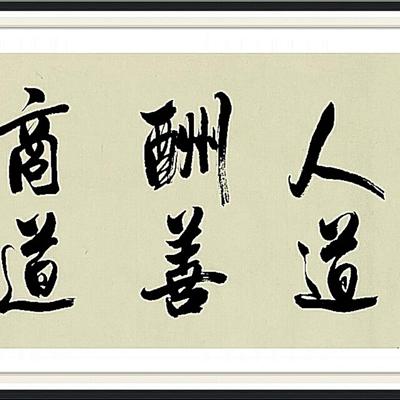 人道
酬善
商道